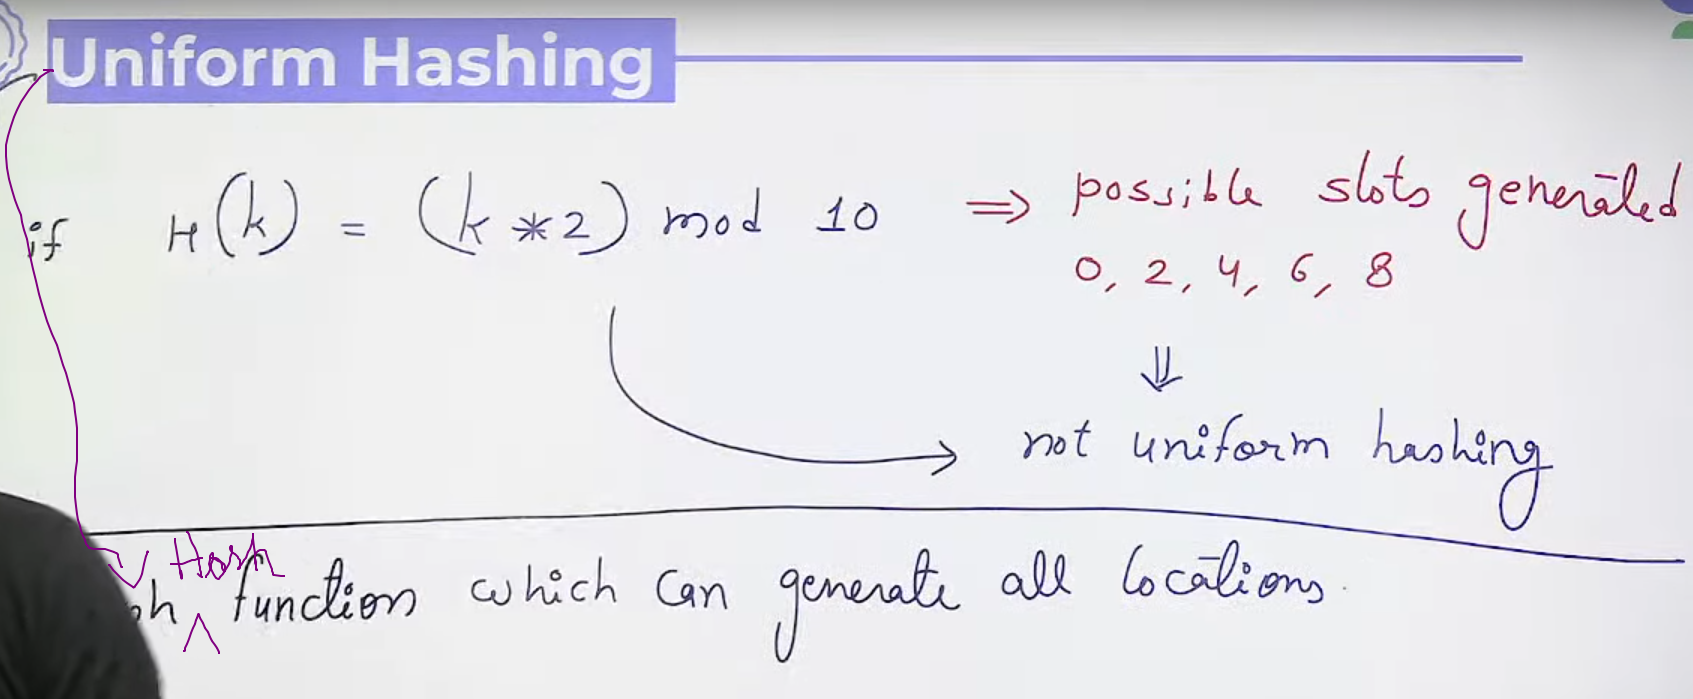 Uniform Hashing
if H(k) = (k * 2) mod 10 ⇒ possible slots generated
0, 2, 4, 6, 8
⇓
not uniform hashing
Hash
function which can generate all locations.